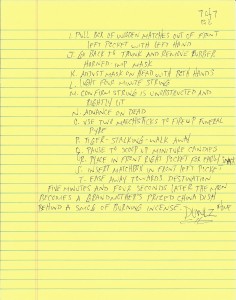 7 of 7
I. PULL BOX OF WOODEN MATCHES OUT OF FRONT
LEFT POCKET WITH LEFT HAND
J. GO BACK TO TRUNK AND REMOVE RUBBER
HORNED-IMP MASK
K. ADJUST MASK ON HEAD WITH BOTH HANDS
L. LIGHT FOUR MINUTE STRING
M. CONFIRM STRING IS UNOBSTRUCTED AND
RIGHTLY LIT
N. ADVANCE ON DEAD
O. USE TWO MATCHSTICKS TO FIRE UP FUNERAL
PYRE
P. TIGER-STALKING-WALK AWAY
Q. PAUSE TO SCOOP UP MINIATURE CANDIES
R. PLACE IN FRONT RIGHT POCKET FOR EARLY SNACK
S. INSERT MATCHBOX IN FRONT LEFT POCKET
T. EASE AWAY TOWARDS DESTINATION
FIVE MINUTES AND FOUR SECONDS LATER THE MOON
BECOMES A GRANDMOTHER'S PRIZED CHINA DISH
BEHIND A SMOKE OF BURNING INCENSE